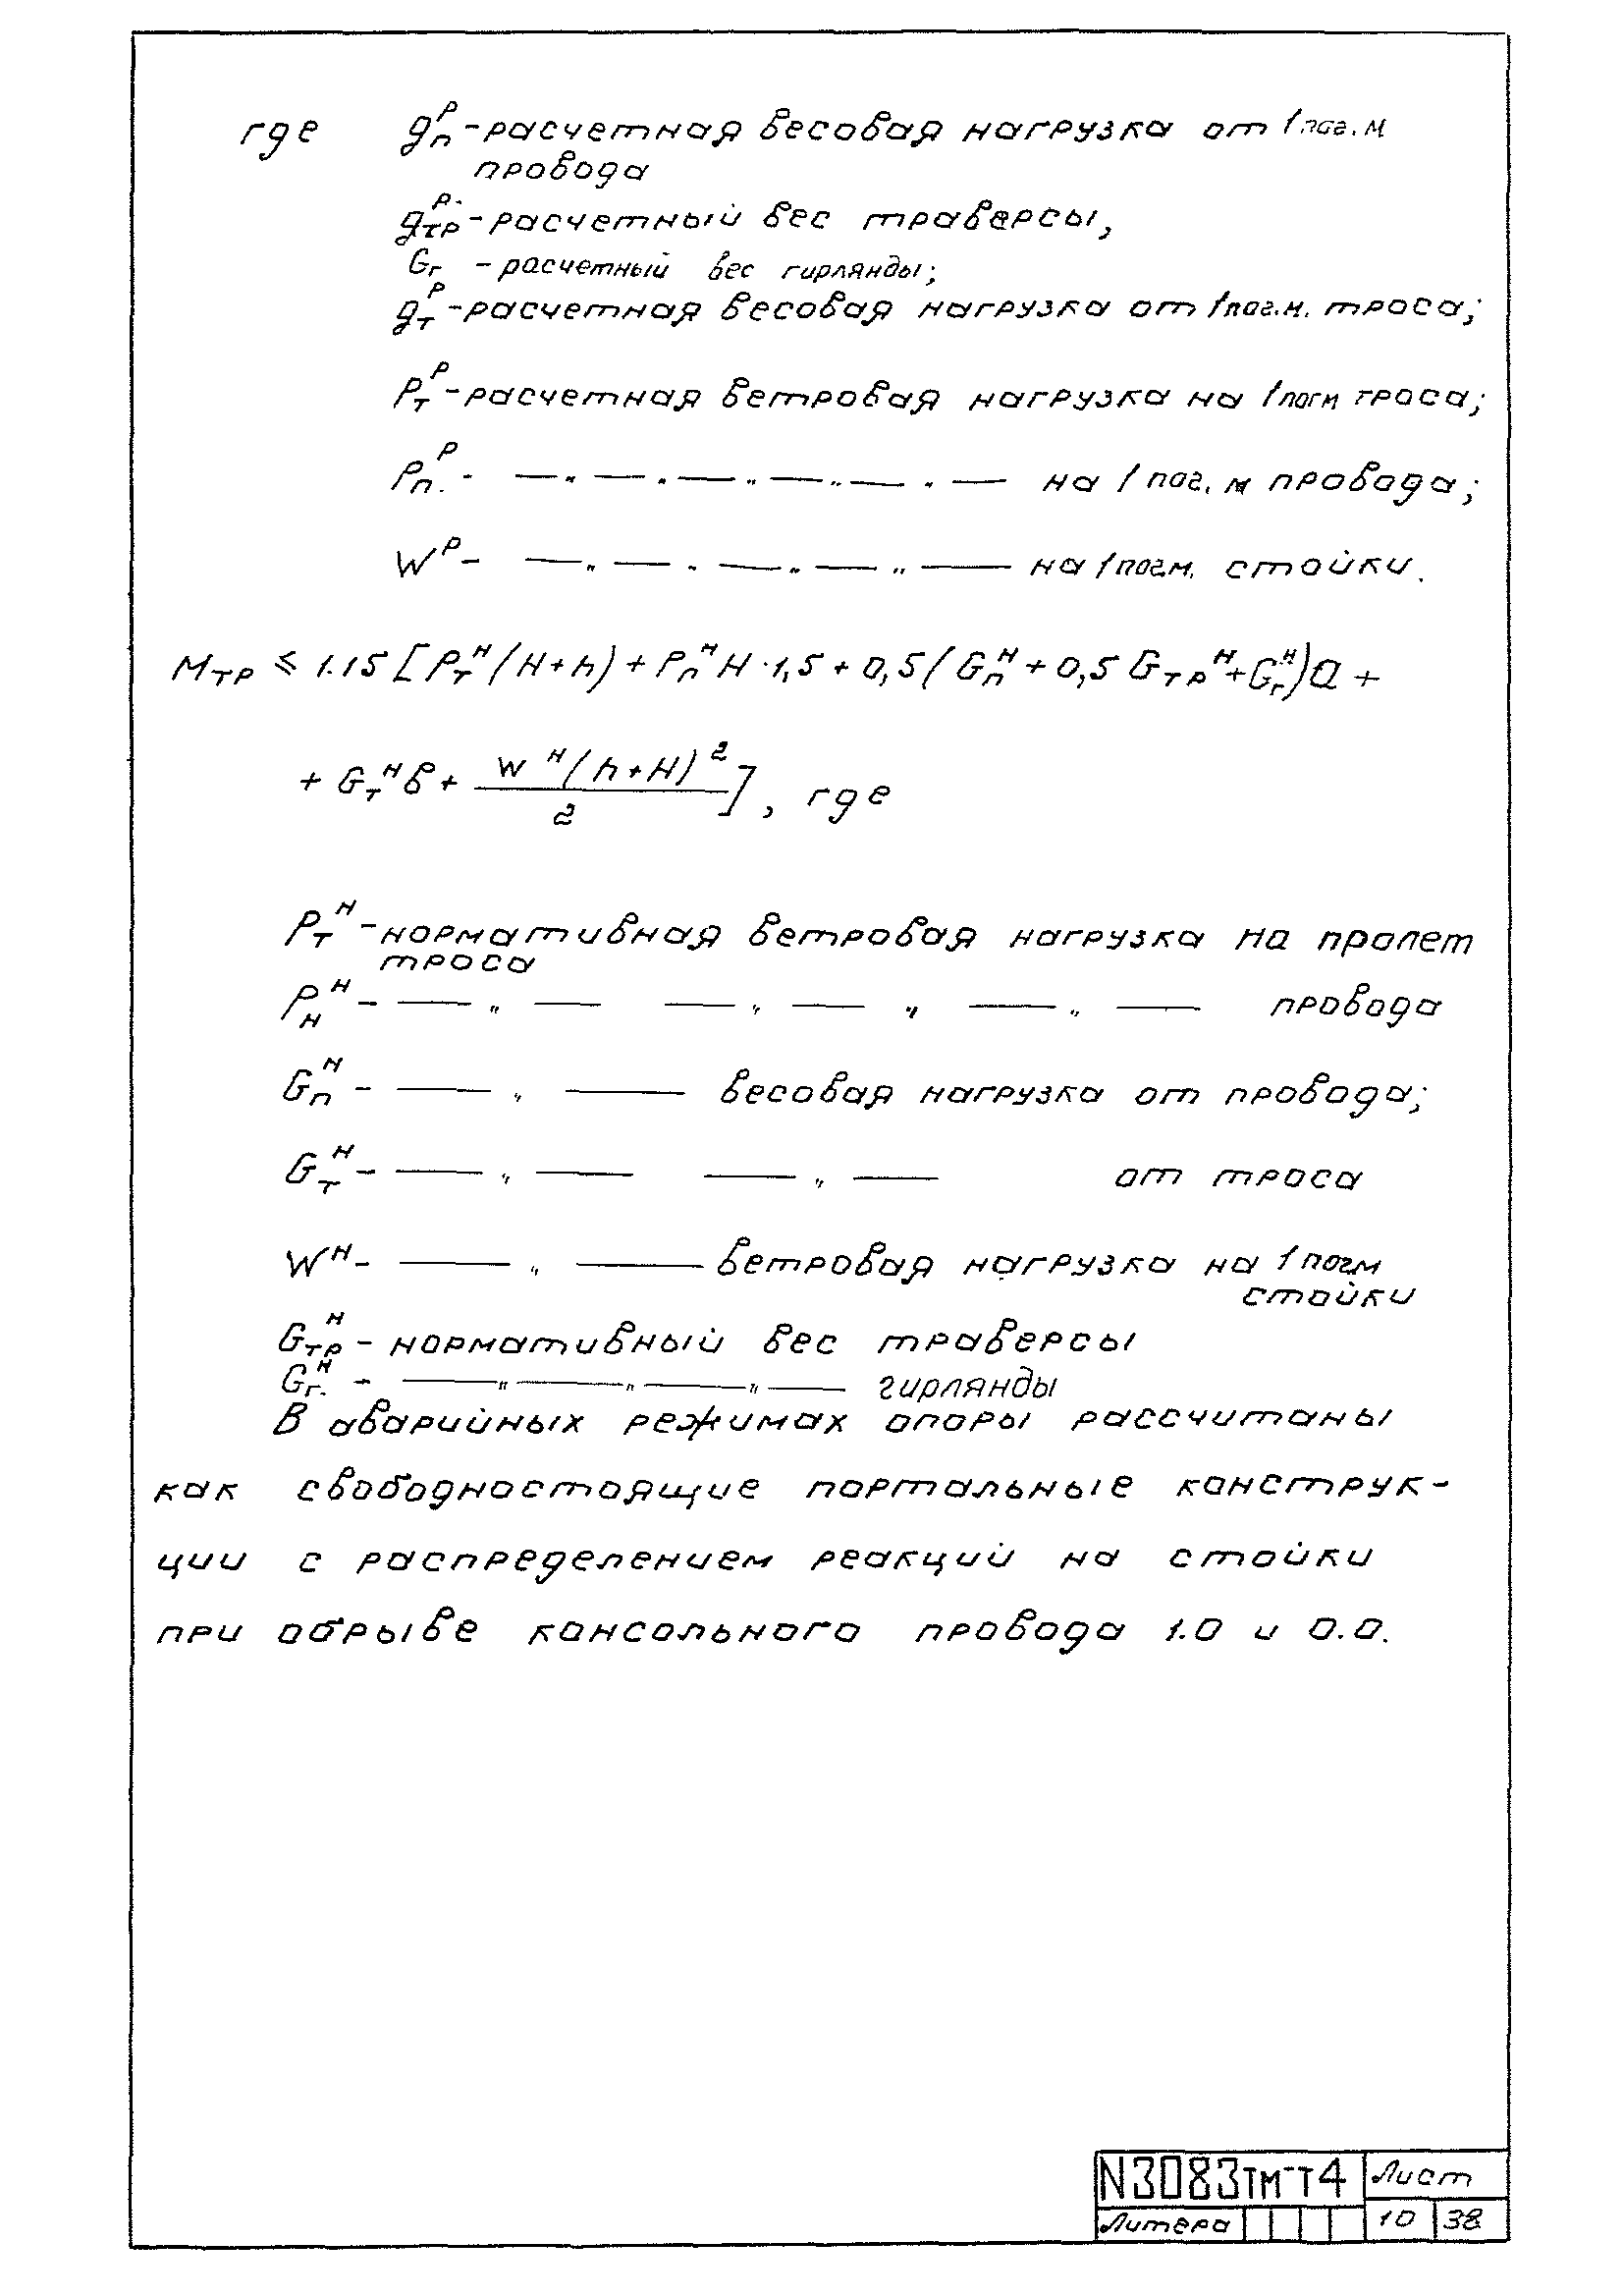 где gпᴾ - расчетная весовая нагрузка от 1 пог. м
провода
gтрᴾ - расчетный вес траверсы,
Gг - расчетный вес гирлянды;
gтᴾ - расчетная весовая нагрузка от 1 пог.м. троса;
Pтᴾ - расчетная ветровая нагрузка на 1 погм троса;
Pпᴾ - —„—„—„—„—„— на 1 пог. м провода;
Wᴾ - —„—„—„—„— на 1 погм. стойки.
Mтр ≤ 1.15 [Pтᴴ(H+h) + Pпᴴ H·1,5 + 0,5(Gпᴴ + 0,5 Gтрᴴ + Gгᴴ)a +
+ Gтᴴ в + Wᴴ(h+H)²/2], где
Pтᴴ - нормативная ветровая нагрузка на пролет
троса
Pнᴴ - —„— —„—„—„— провода
Gпᴴ - —„— весовая нагрузка от провода;
Gтᴴ - —„— —„— от троса
Wᴴ - —„— ветровая нагрузка на 1 погм
стойки
Gтрᴴ - нормативный вес траверсы
Gг.ᴴ - —„—„—„— гирлянды
В аварийных режимах опоры рассчитаны
как свободностоящие портальные конструк-
ции с распределением реакций на стойки
при обрыве консольного провода 1.0 и 0.0.
N3083тм-т4 Лист
Литера 10 38